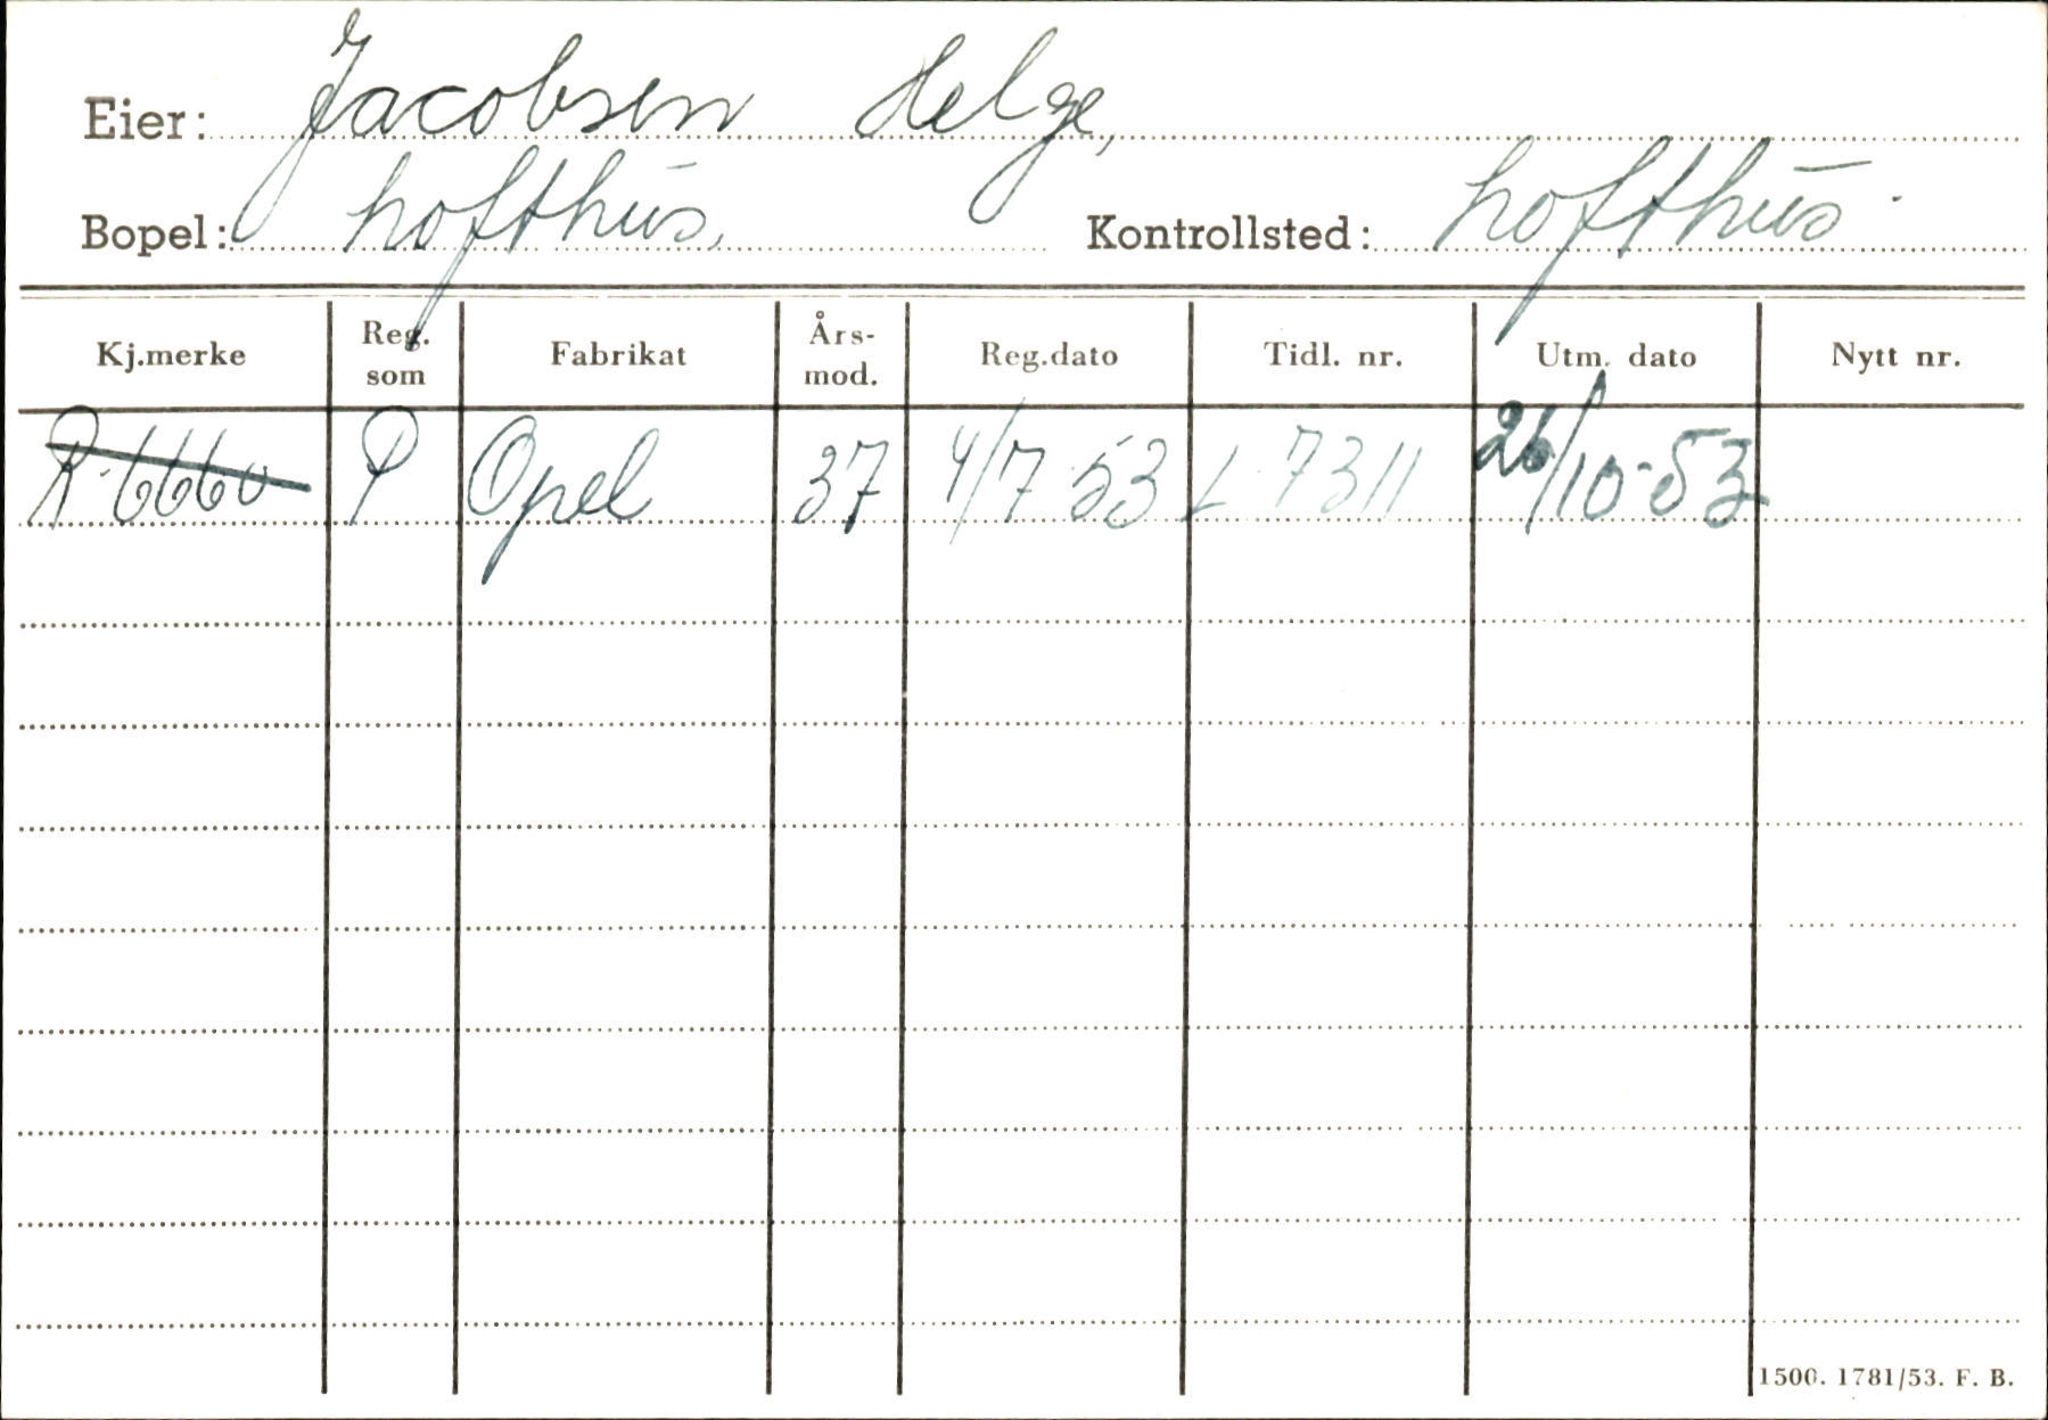 Eier: Jacobsen Helge,
Bopel: Lofthus. Kontrollsted: Lofthus.
Kj.merke Reg. som Fabrikat Års-mod. Reg.dato Tidl. nr. Utm. dato Nytt nr.
R-6660 P Opel 37 4/7-53 L-7311 26/10-53
1500. 1781/53. F. B.